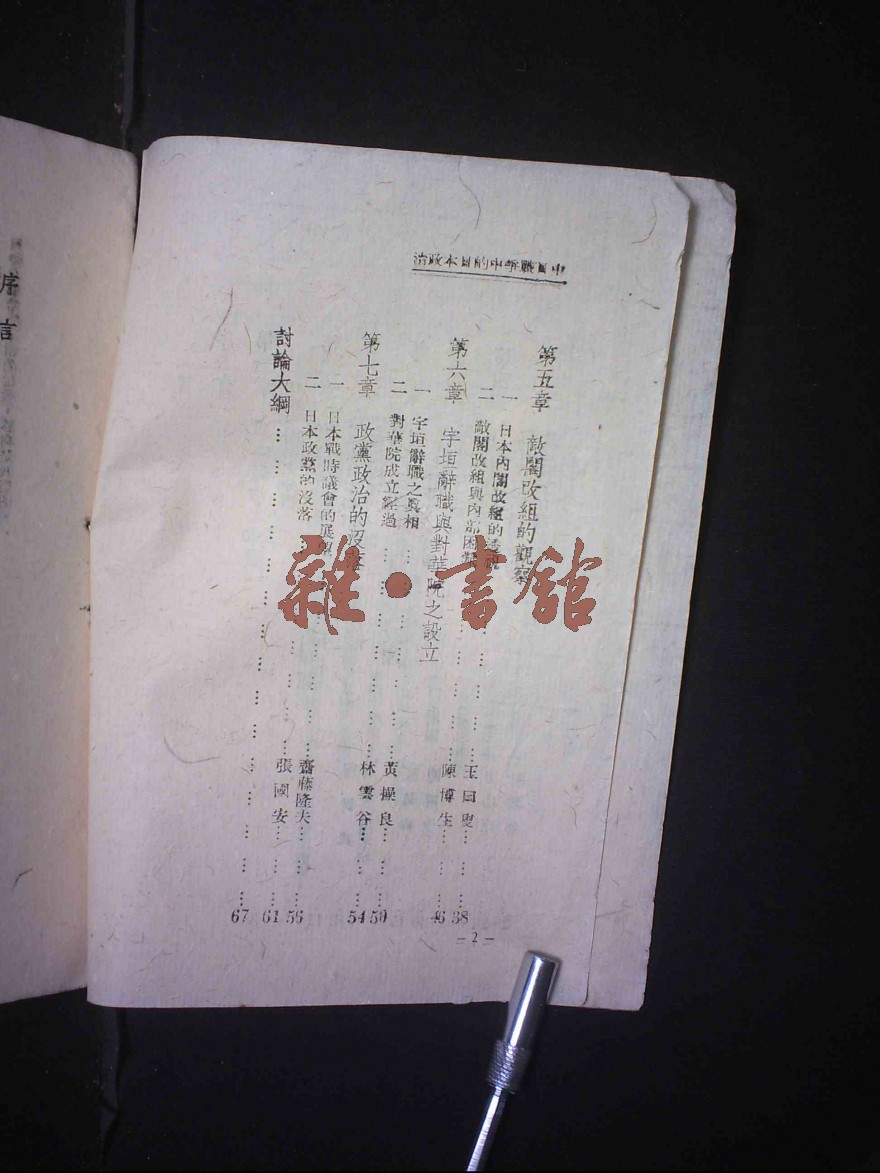 中日戰爭中的日本政治
第五章 敵閣改組的觀察
一 日本內閣改組的透視 … … … 王 … … … 38
二 敵閣改組與內部困難 … … … 陳博生 … … … 46
第六章 宇垣辭職與對華院之設立
一 宇垣辭職之眞相 … … … 黃操良 … … … 50
二 對華院成立經過 … … … 林雲谷 … … … 54
第七章 政黨政治的沒落
一 日本戰時議會的展望 … … … 齋藤隆夫 … … … 56
二 日本政黨的沒落 … … … 張國安 … … … 61
討論大綱 … … … 67
—2—
序言
雜·書館